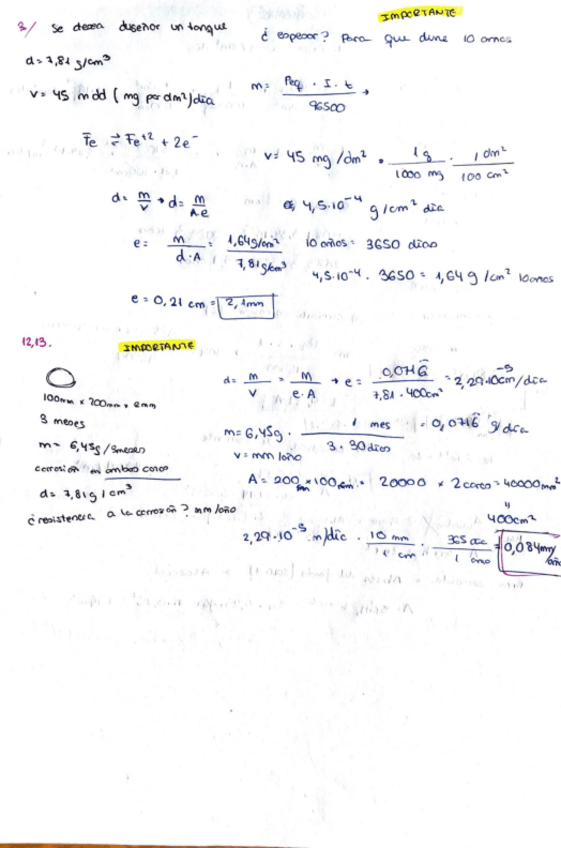 IMPORTANTE
3/ Se desea diseñar un tanque ¿ espesor? Para que dure 10 años
d = 7,81 g/cm³
v = 45 mdd ( mg por dm²)/día
m = Peq · I · t / 96500 →
Fe ⇌ Fe⁺² + 2e⁻
v = 45 mg/dm² · 1 g / 1000 mg · 1 dm² / 100 cm²
d = m / V → d = m / A·e
4,5·10⁻⁴ g/cm² día
e = m / d·A = 1,64 g/cm² / 7,81 g/cm³
10 años = 3650 días
4,5·10⁻⁴ · 3650 = 1,64 g/cm² 10 años
e = 0,21 cm = 2,1mm
12,13. IMPORTANTE
100mm x 200mm x emm
3 meses
m = 6,45g/3meses
corrosión en ambas caras
d = 7,81 g/cm³
¿resistencia a la corrosión? mm/año
d = m / V = m / e·A → e = 0,0716 / 7,81 · 400cm² = 2,29·10⁻⁵ cm/día
m = 6,45g · 1 mes / 3·30 días = 0,0716 g/día
v = mm/año
A = 200mm x 100mm = 20000 x 2 caras = 40000mm²
400cm²
2,29·10⁻⁵ m/día · 10 mm / 1 cm · 365 día / 1 año = 0,084mm/año